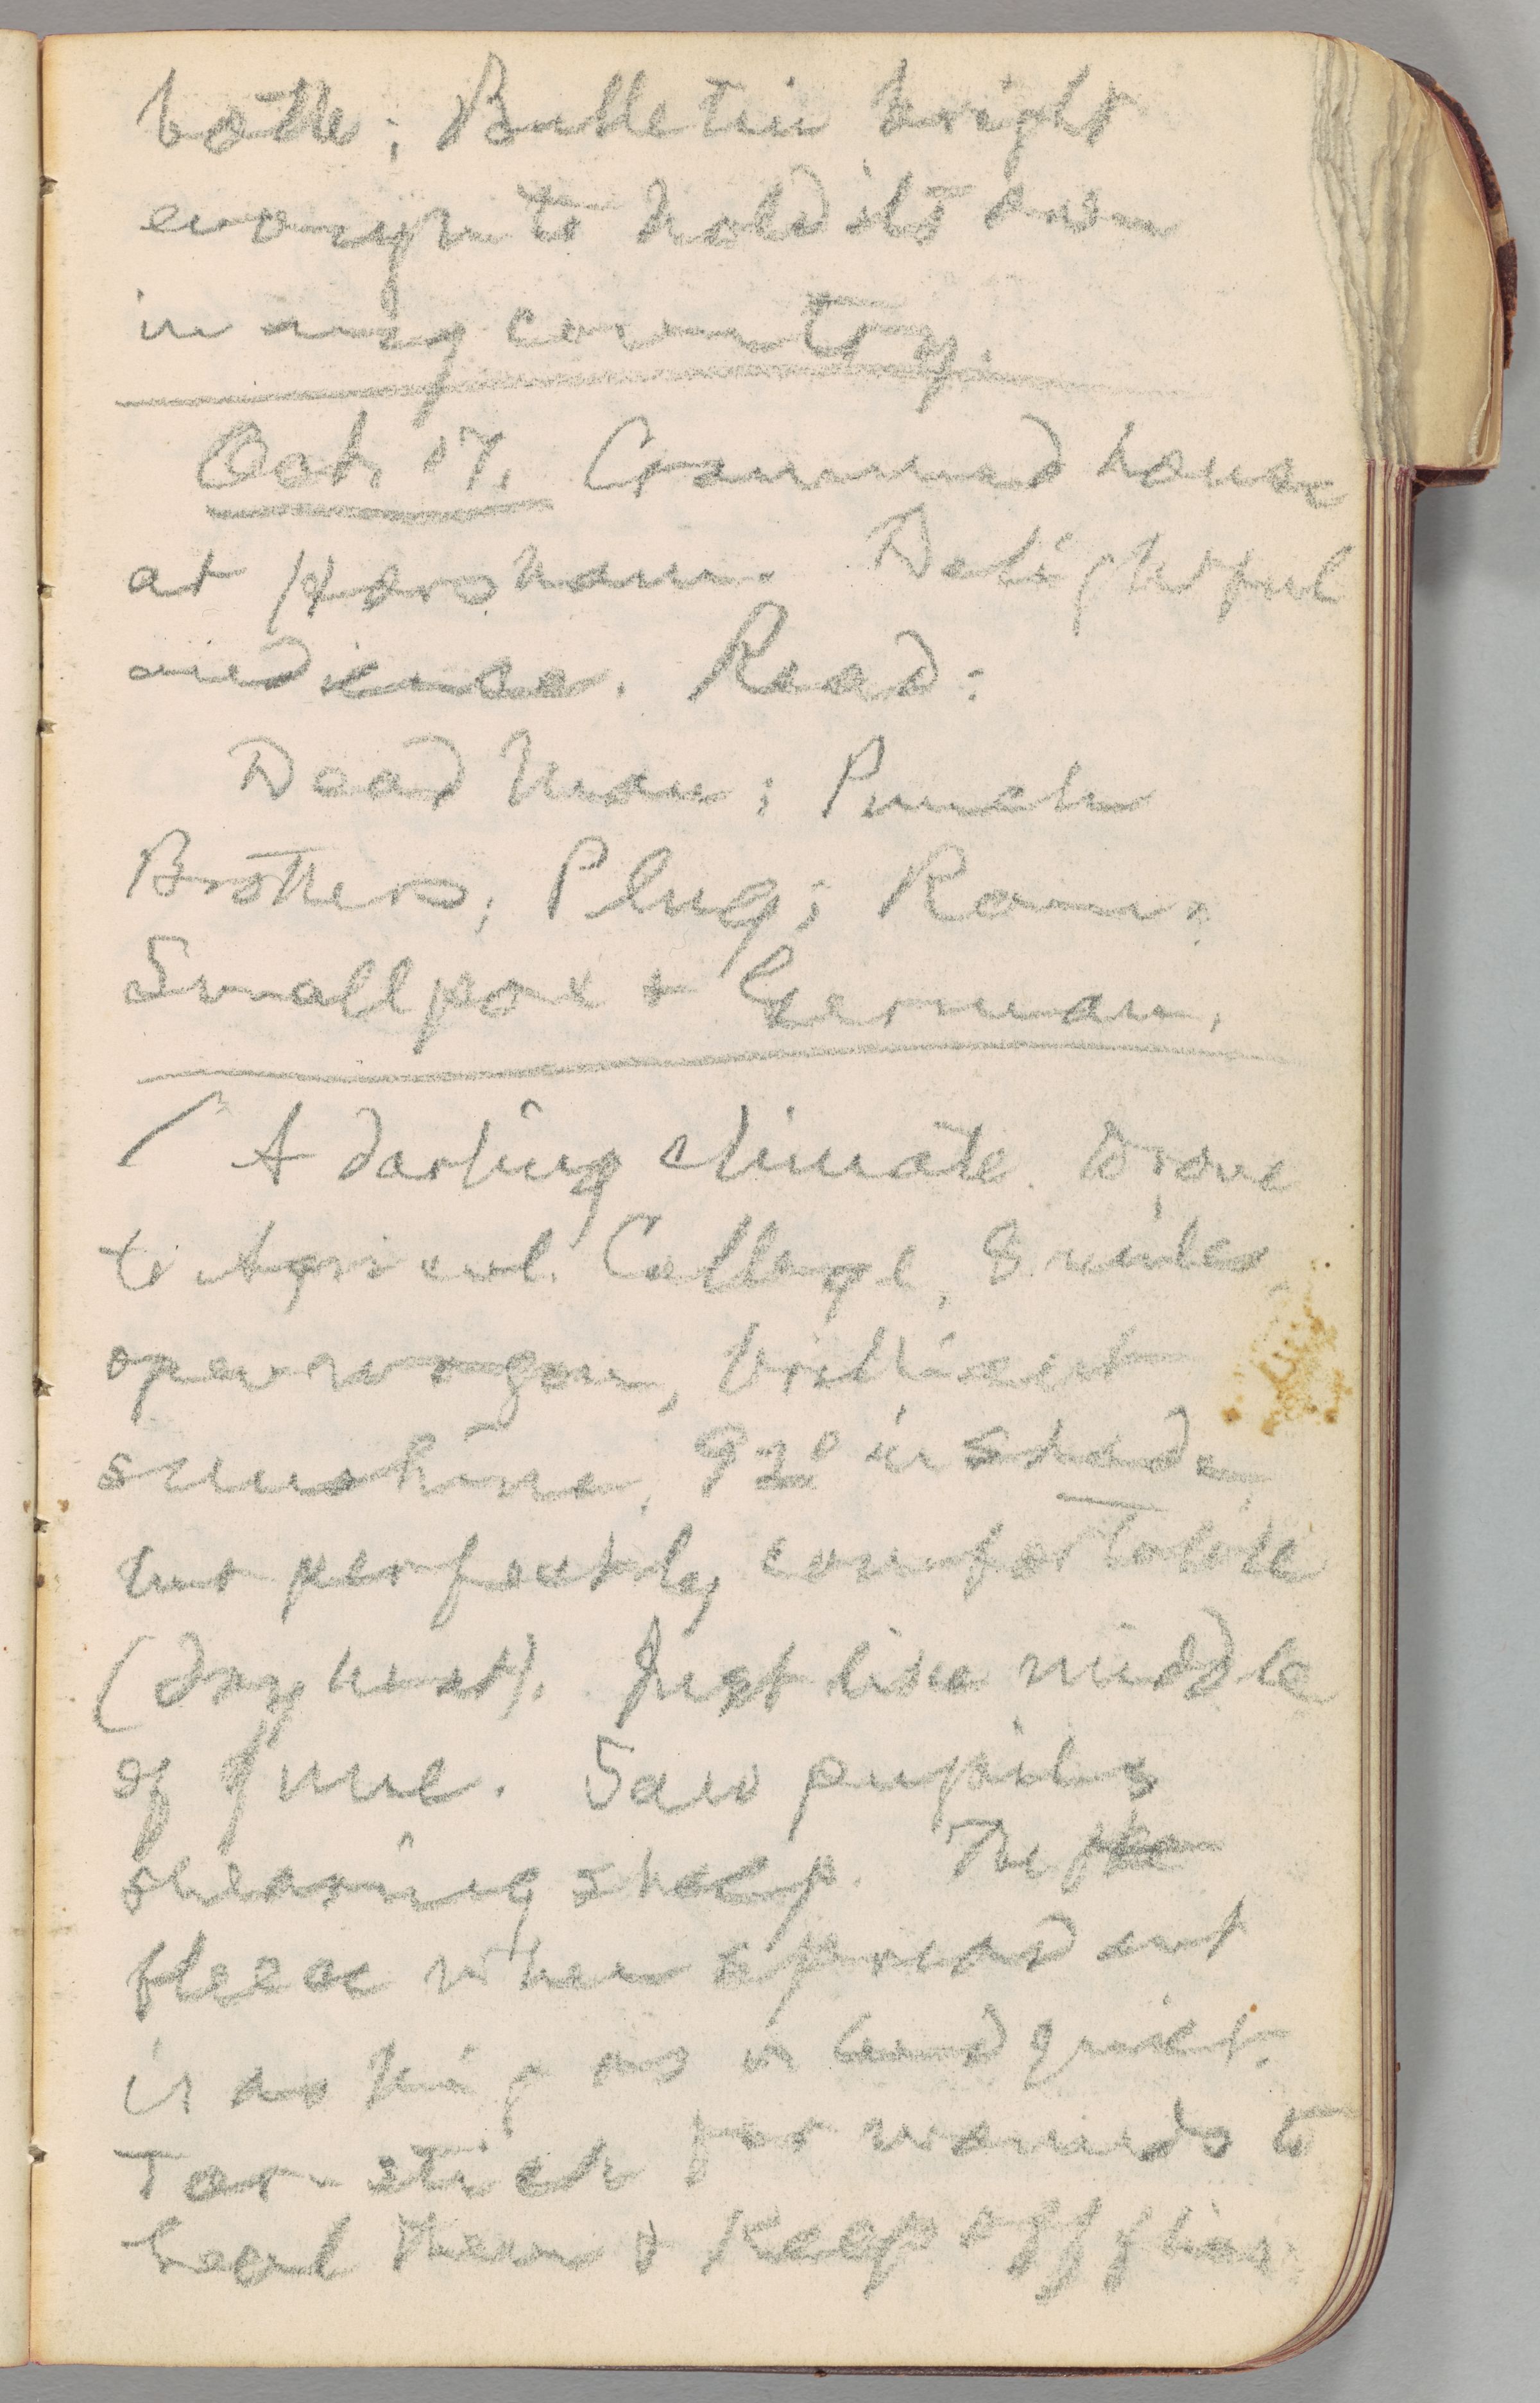 both; Bulletin bright
enough to hold its own
in any country.
Oct. 17. Crammed house
at Horsham. Delightful
audience. Read:
Dead Man; Punch
Brothers; Plug; Ram;
Smallpox & German.
A darling climate. Drove
to Agricul. College, 8 miles,
open wagon, brilliant
sunshine, 92° in shade,
but perfectly comfortable
(dry heat). Just like middle
of June. Saw pupils
shearing sheep. The
fleece when spread out
is as big as a bed quilt.
Tar-stick for wounds to
heal them & keep off flies.